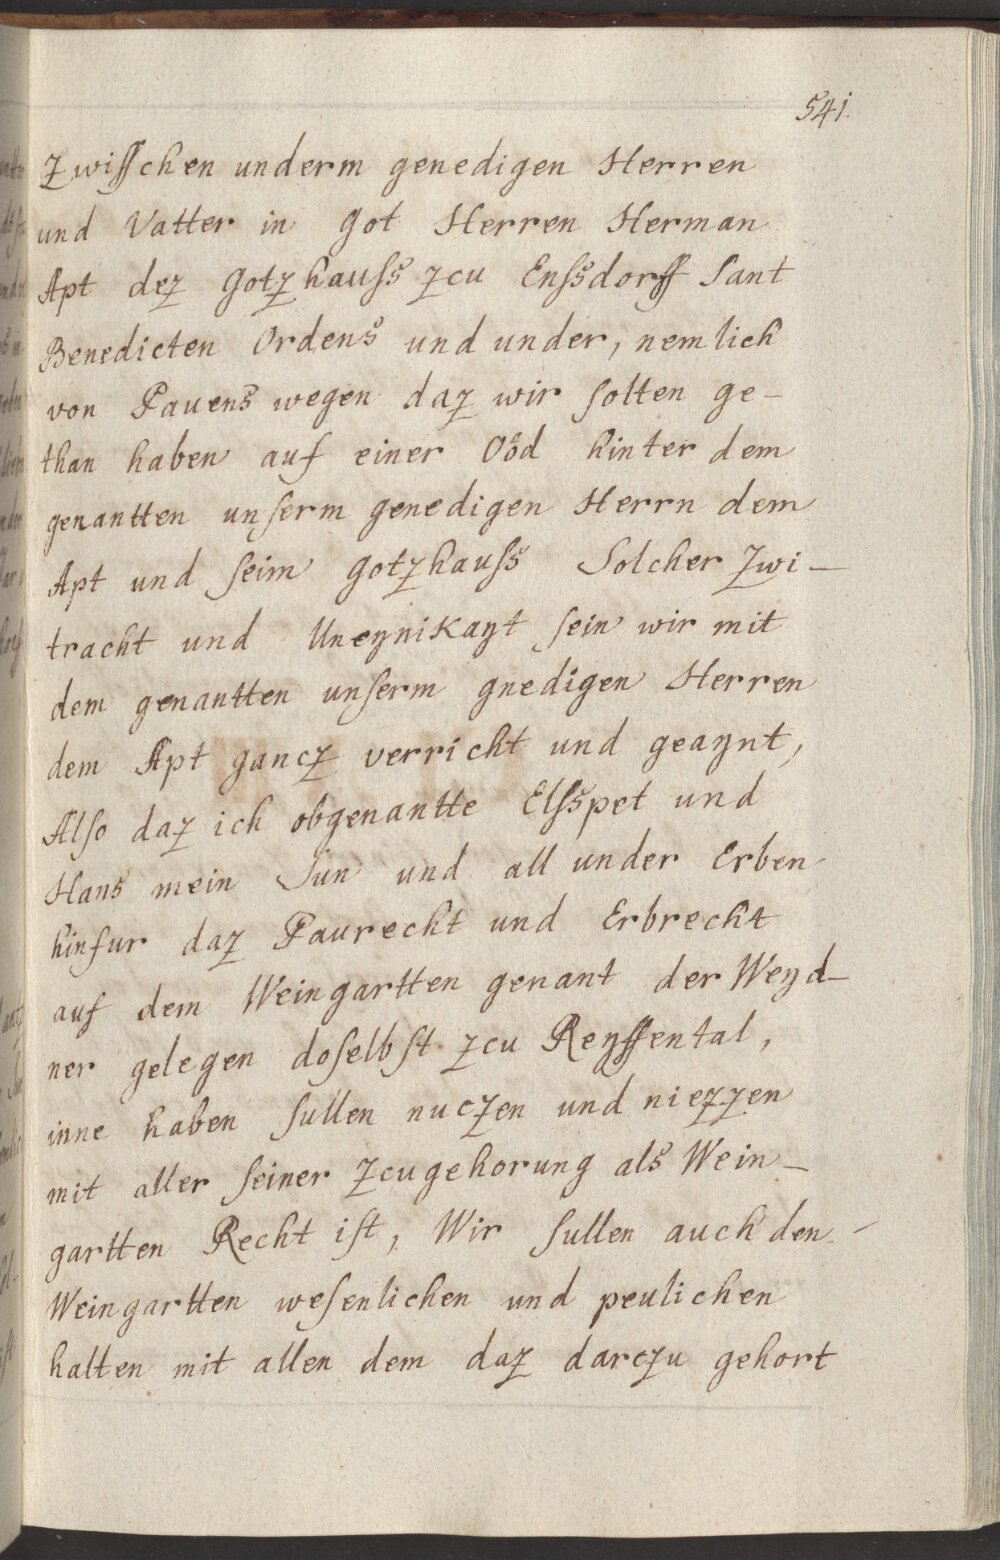 541.
Zwisschen underm genedigen Herren
und Vatter in Got Herren Herman
Apt dez Gotzhauss zcu Enssdorff Sant
Benedicten Ordens und under, nemlich
von Pauens wegen daz wir solten ge-
than haben auf einer Oöd hinter dem
genantten unserm genedigen Herrn dem
Apt und seim Gotzhauss Solcher Zwi-
tracht und Uneynikayt sein wir mit
dem genantten unserm gnedigen Herren
dem Apt gancz verricht und geaynt,
Also daz ich obgenantte Elsspet und
Hans mein Sun und all under Erben
hinfur daz Paurecht und Erbrecht
auf dem Weingartten genant der Weyd-
ner gelegen doselbst zcu Reyffental,
inne haben sullen nuczen und niezzen
mit aller seiner Zcugehorung als Wein-
gartten Recht ist, Wir sullen auch den
Weingartten wesenlichen und peulichen
halten mit allen dem daz darczu gehort